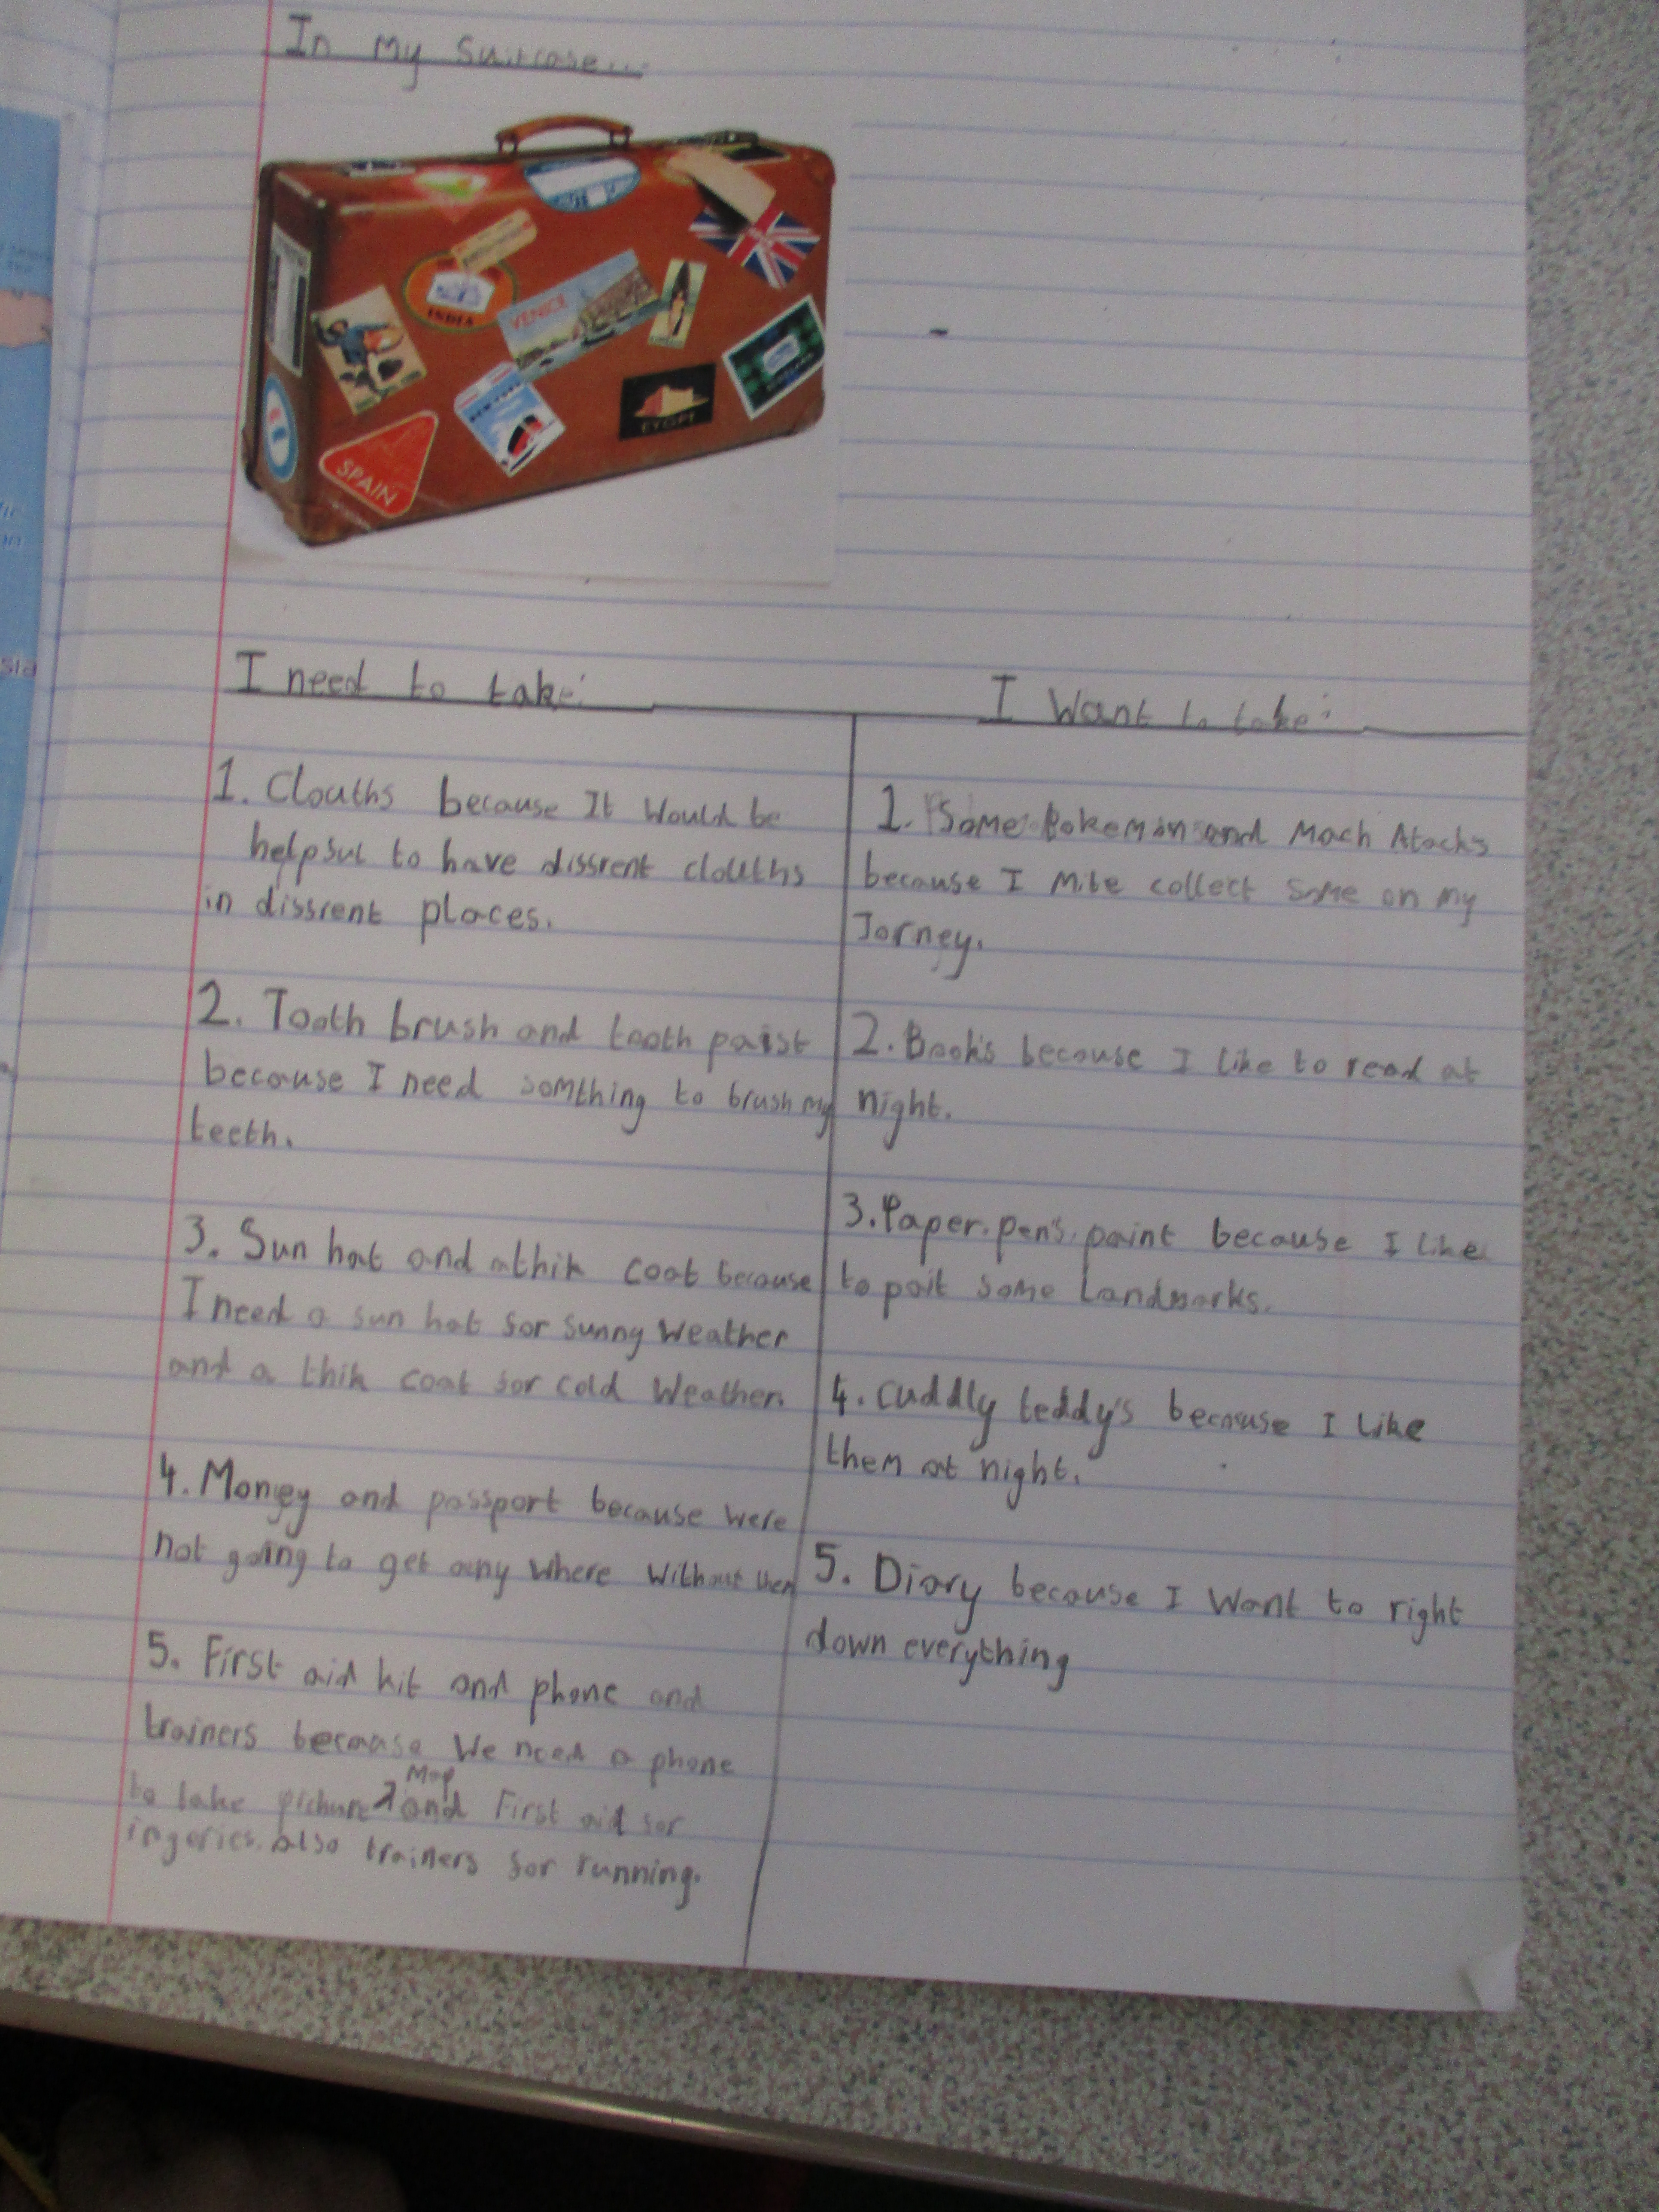 In My Suitcase...
INDIA
VENICE
EYGPT
SPAIN
I need to take:
1. Clouths because It Would be
helpful to have diffrent clouths
in diffrent places.
2. Tooth brush and tooth paist
because I need somthing to brush my
teeth.
3. Sun hat and athik coat because
I need a sun hat for sunny Weather
and a thik coat for cold Weather.
4. Money and passport because were
not going to get any where without them
5. First aid kit and phone and
trainers because We need a phone
Map
to take picture and First aid for
ingeries. also trainers for running.
I Want to take:
1. Some Pokemon and Mach Atacks
because I Mite collect some on my
Jorney.
2. Book's because I like to read at
night.
3. Paper. pen's. paint because I like
to pait some Landmarks.
4. Cuddly teddy's because I like
them at night.
5. Diary because I Want to right
down everything